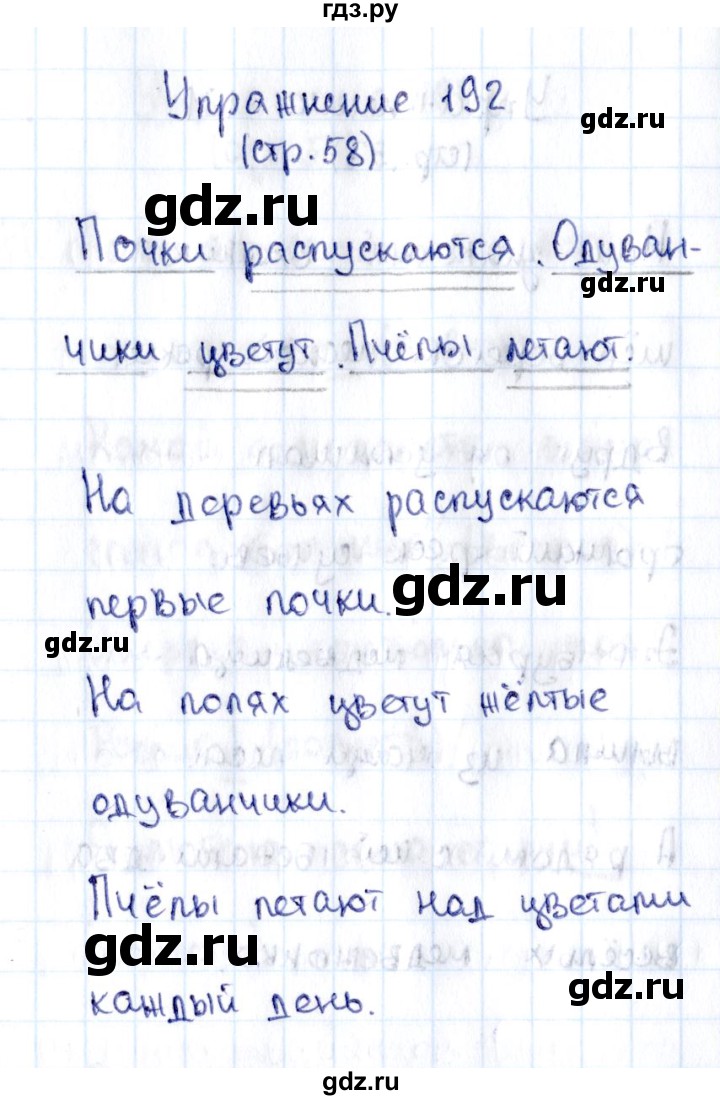 гдз.ру
Упражнение 192
gdz.ru
(стр. 58)
gdz.ru
Почки распускаются. Одуван-
gdz.ru
чики цветут. Пчёлы летают.
На деревьях распускаются
первые почки.
gdz.ru
gdz.ru
На полях цветут жёлтые
одуванчики.
Пчёлы летают над цветами
gdz.ru
каждый день.
gdz.ru
gdz.ru